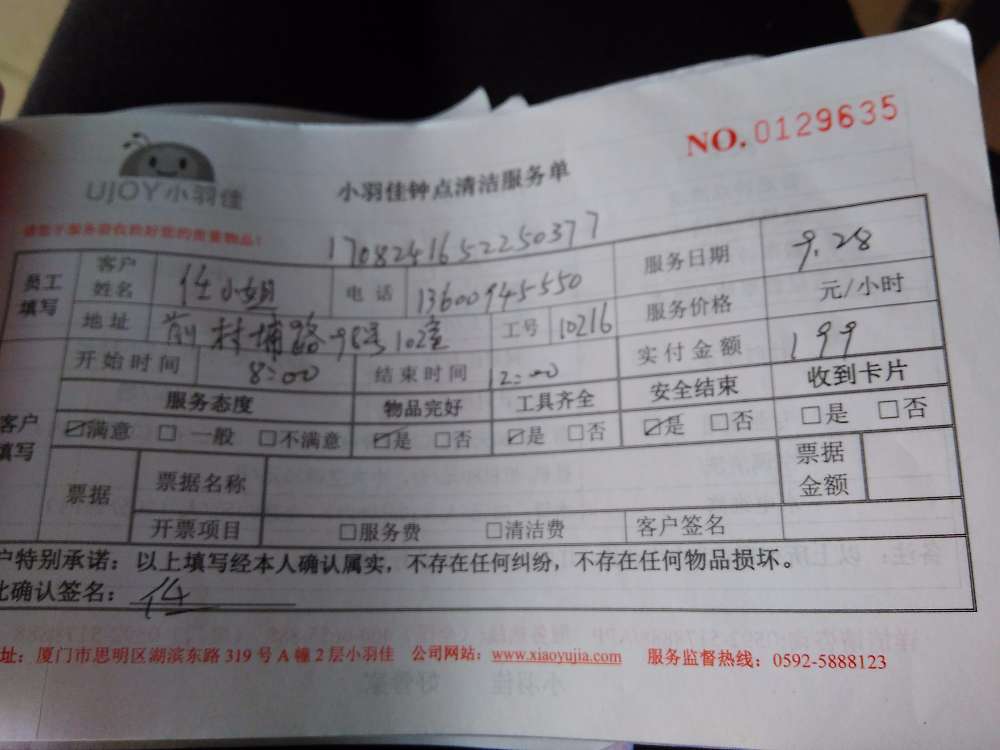 NO.0129635
UJOY小羽佳
小羽佳钟点清洁服务单
请您于服务前收拾好您的贵重物品!
1708241652250377
员工填写 客户姓名 任小姐 电话 13600945550 服务日期 9.28
地址 前村埔路98号102室 工号 10216 服务价格 元/小时
开始时间 8:00 结束时间 12:00 实付金额 199
客户填写 服务态度 物品完好 工具齐全 安全结束 收到卡片
☑满意 □一般 □不满意 ☑是 □否 ☑是 □否 ☑是 □否 □是 □否
票据 票据名称 票据金额
开票项目 □服务费 □清洁费 客户签名
户特别承诺：以上填写经本人确认属实，不存在任何纠纷，不存在任何物品损坏。
此确认签名：任
址：厦门市思明区湖滨东路 319 号 A 幢 2 层小羽佳 公司网站：www.xiaoyujia.com 服务监督热线：0592-5888123